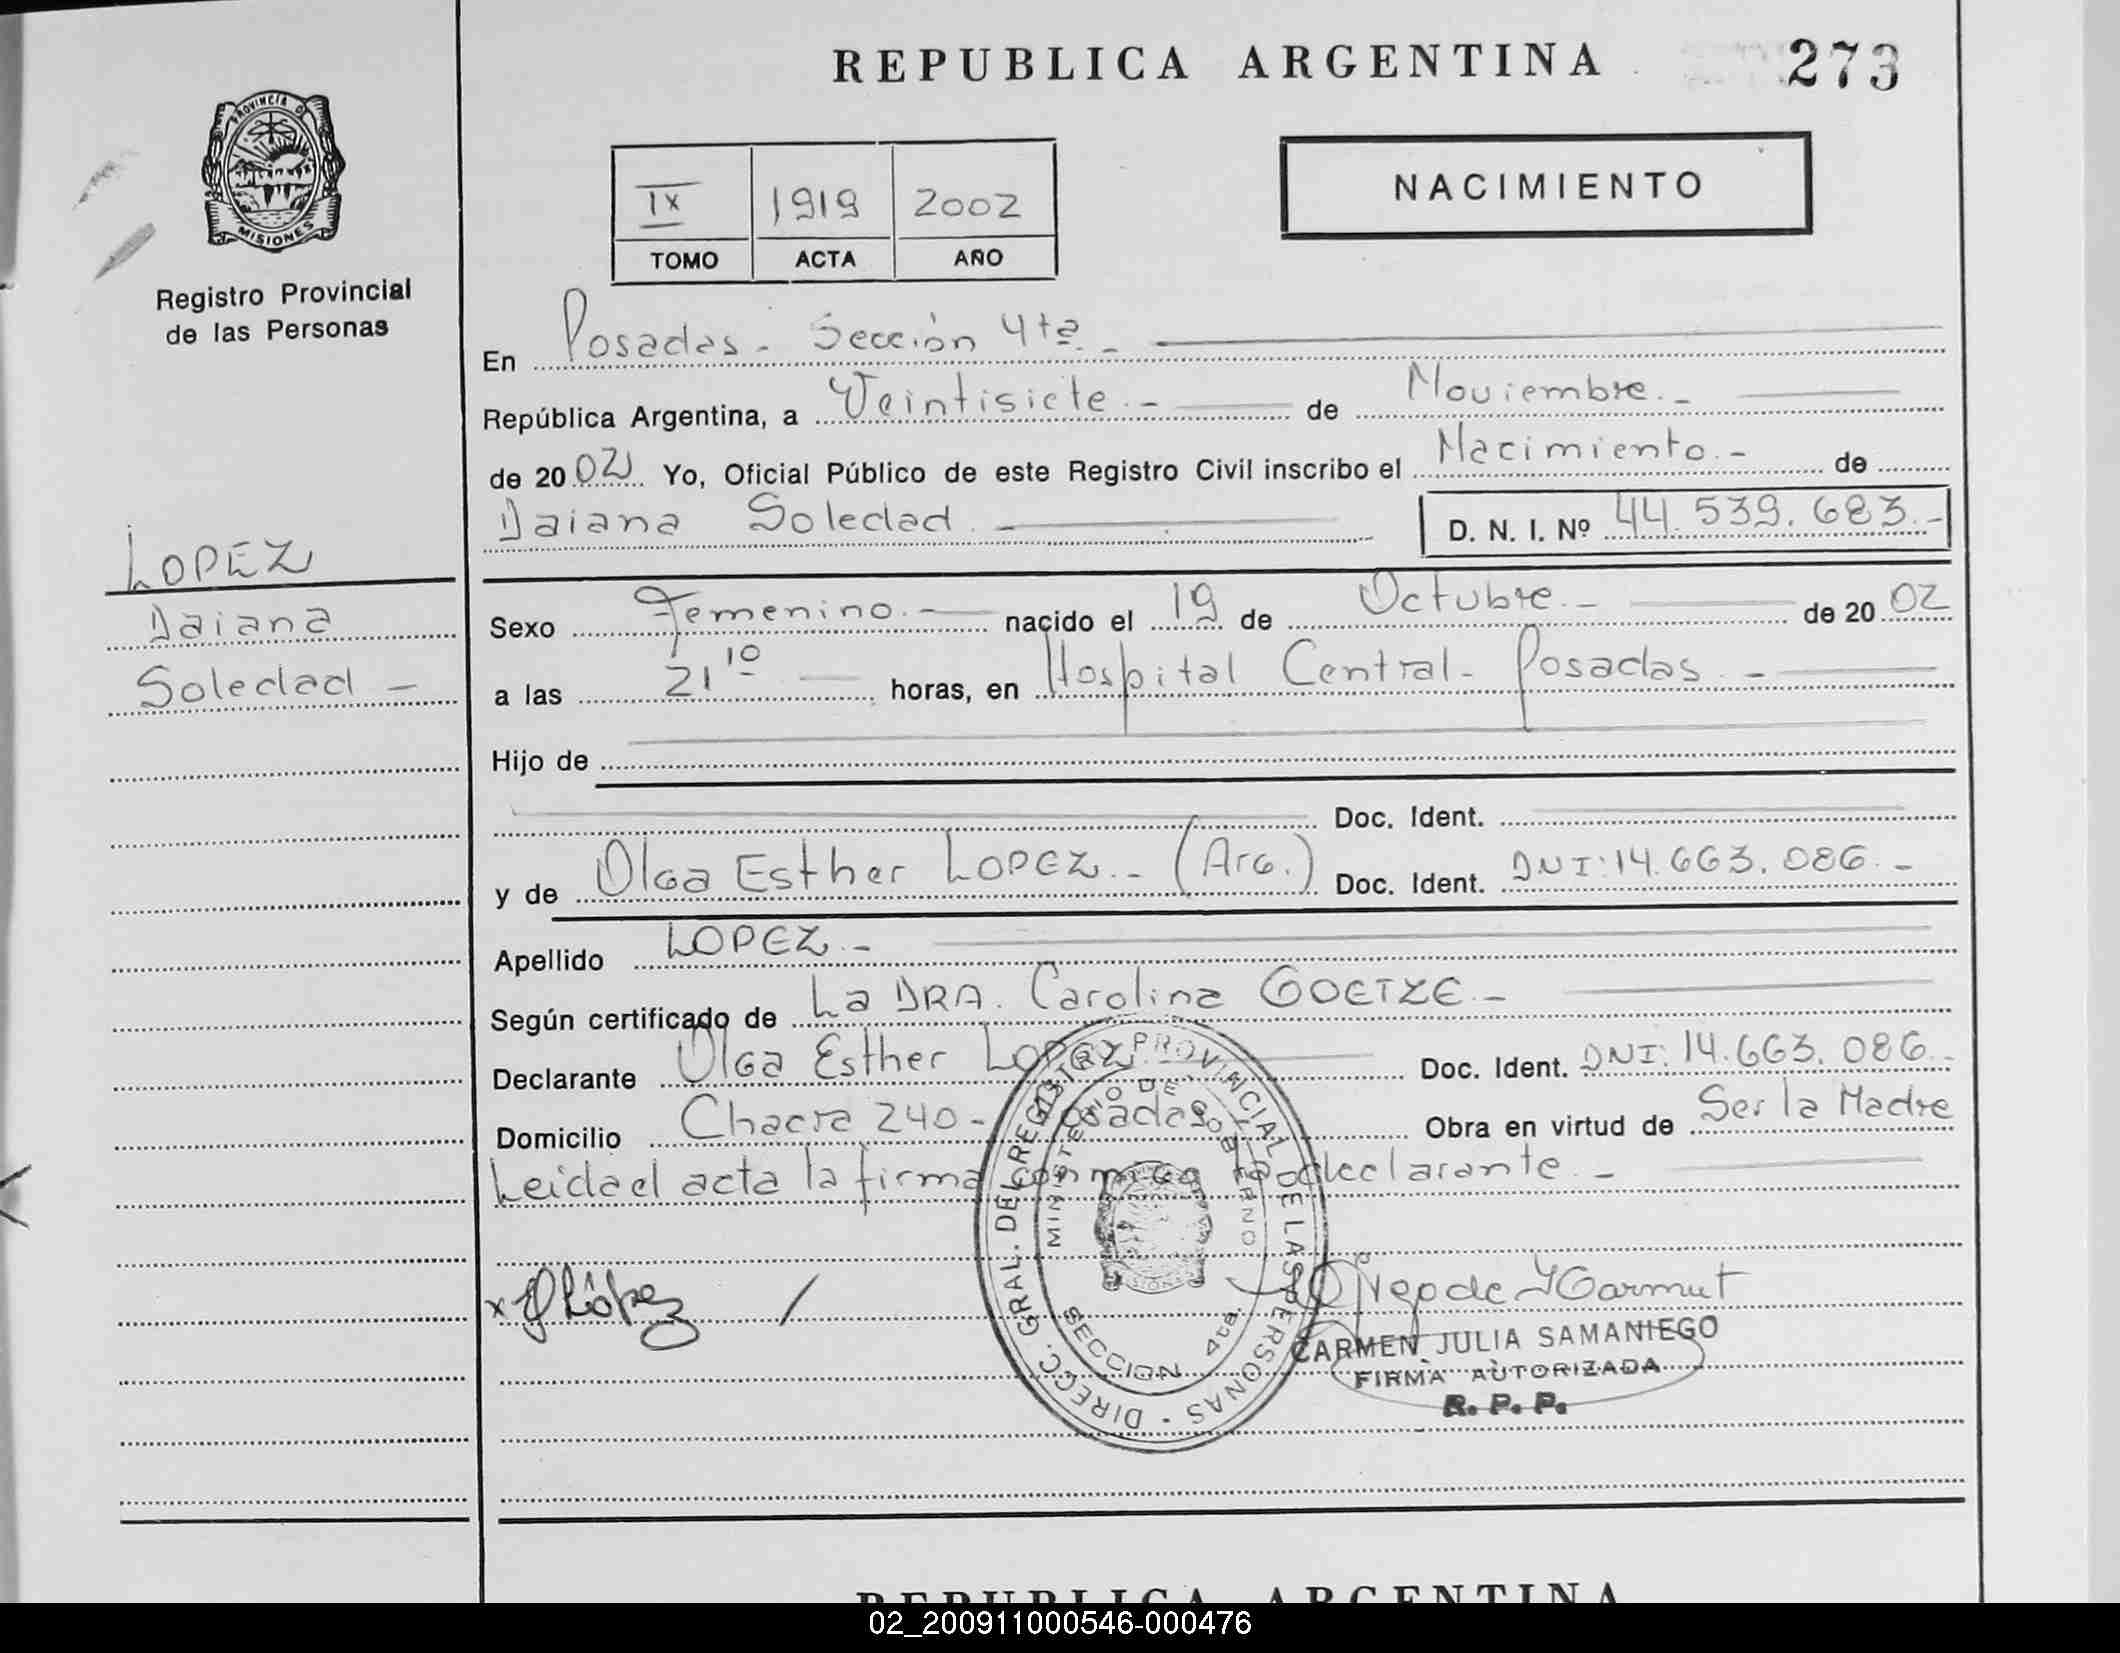 REPUBLICA ARGENTINA 273
PROVINCIA DE
MISIONES
Registro Provincial
de las Personas
IX 1919 2002
TOMO ACTA AÑO
NACIMIENTO
En Posadas - Sección 4ta. -
República Argentina, a Veintisiete. - de Noviembre. -
de 20 02 Yo, Oficial Público de este Registro Civil inscribo el Nacimiento. - de
Daiana Soledad. - D. N. I. Nº 44.539.683. -
LOPEZ
Daiana
Soledad -
Sexo Femenino. - nacido el 19 de Octubre. - de 20 02
a las 21 10 horas, en Hospital Central - Posadas. -
Hijo de
Doc. Ident.
y de Olga Esther LOPEZ. - (Arg.) Doc. Ident. DNI: 14.663.086. -
Apellido LOPEZ. -
Según certificado de La DRA. Carolina GOETZE. -
Declarante Olga Esther Lopez. Doc. Ident. DNI: 14.663.086. -
Domicilio Chacra 240 - Posadas. Obra en virtud de Ser la Madre
Leida el acta la firma conmigo la declarante. -
x López /
DIRECC. GRAL. DEL REGISTRO PROVINCIAL DE LAS PERSONAS
MINISTERIO DE GOBIERNO
SECCION 4ta.
CARMEN JULIA SAMANIEGO
FIRMA AUTORIZADA
R. P. P.
REPUBLICA ARGENTINA
02_200911000546-000476